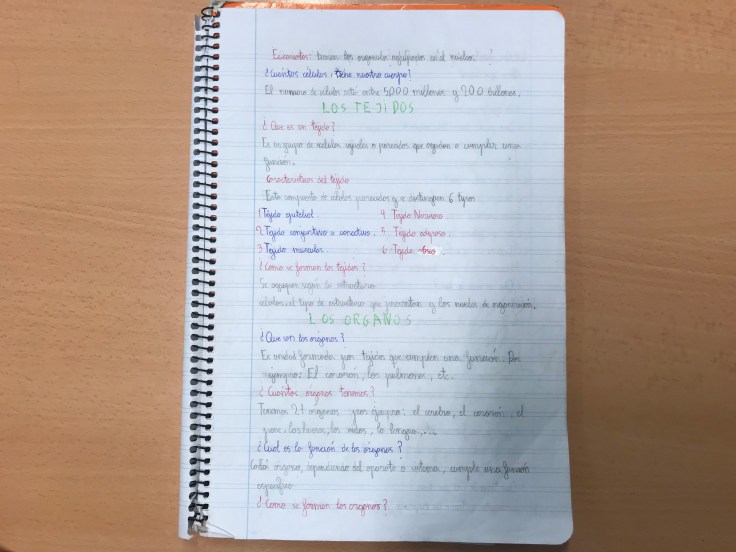 Eucariontas: tienen los organulos agrupados en el núcleo.
¿Cuántas células tiene nuestro cuerpo?
El número de células está entre 5000 millones y 200 billones.
LOS TEJIDOS
¿Que es un tejido?
Es un grupo de células iguales o parecidas que ayudan a cumplir una
función.
Características del tejido
Esta compuesto de células parecidas y se distinguen 6 tipos
1 Tejido epitelial. 4 Tejido Nervioso.
2 Tejido conjuntivo o conectivo. 5 Tejido adiposo.
3 Tejido muscular. 6 Tejido óseo
¿Como se forman los tejidos?
Se agrupan según la estructura
celular, el tipo de estructura que presentan y los niveles de organización.
LOS ORGANOS
¿Que son los órganos?
Es unidad formada por tejidos que cumplen una función. Por
ejemplo: El corazón, los pulmones, etc.
¿Cuántos órganos tenemos?
Tenemos 21 órganos por grupo: el cerebro, el corazón, el
los huesos, los oídos, la lengua,...
¿Cual es la función de los órganos?
Cada órgano, dependiendo del aparato o sistema, cumple una función
específica
¿Como se forman los organos?